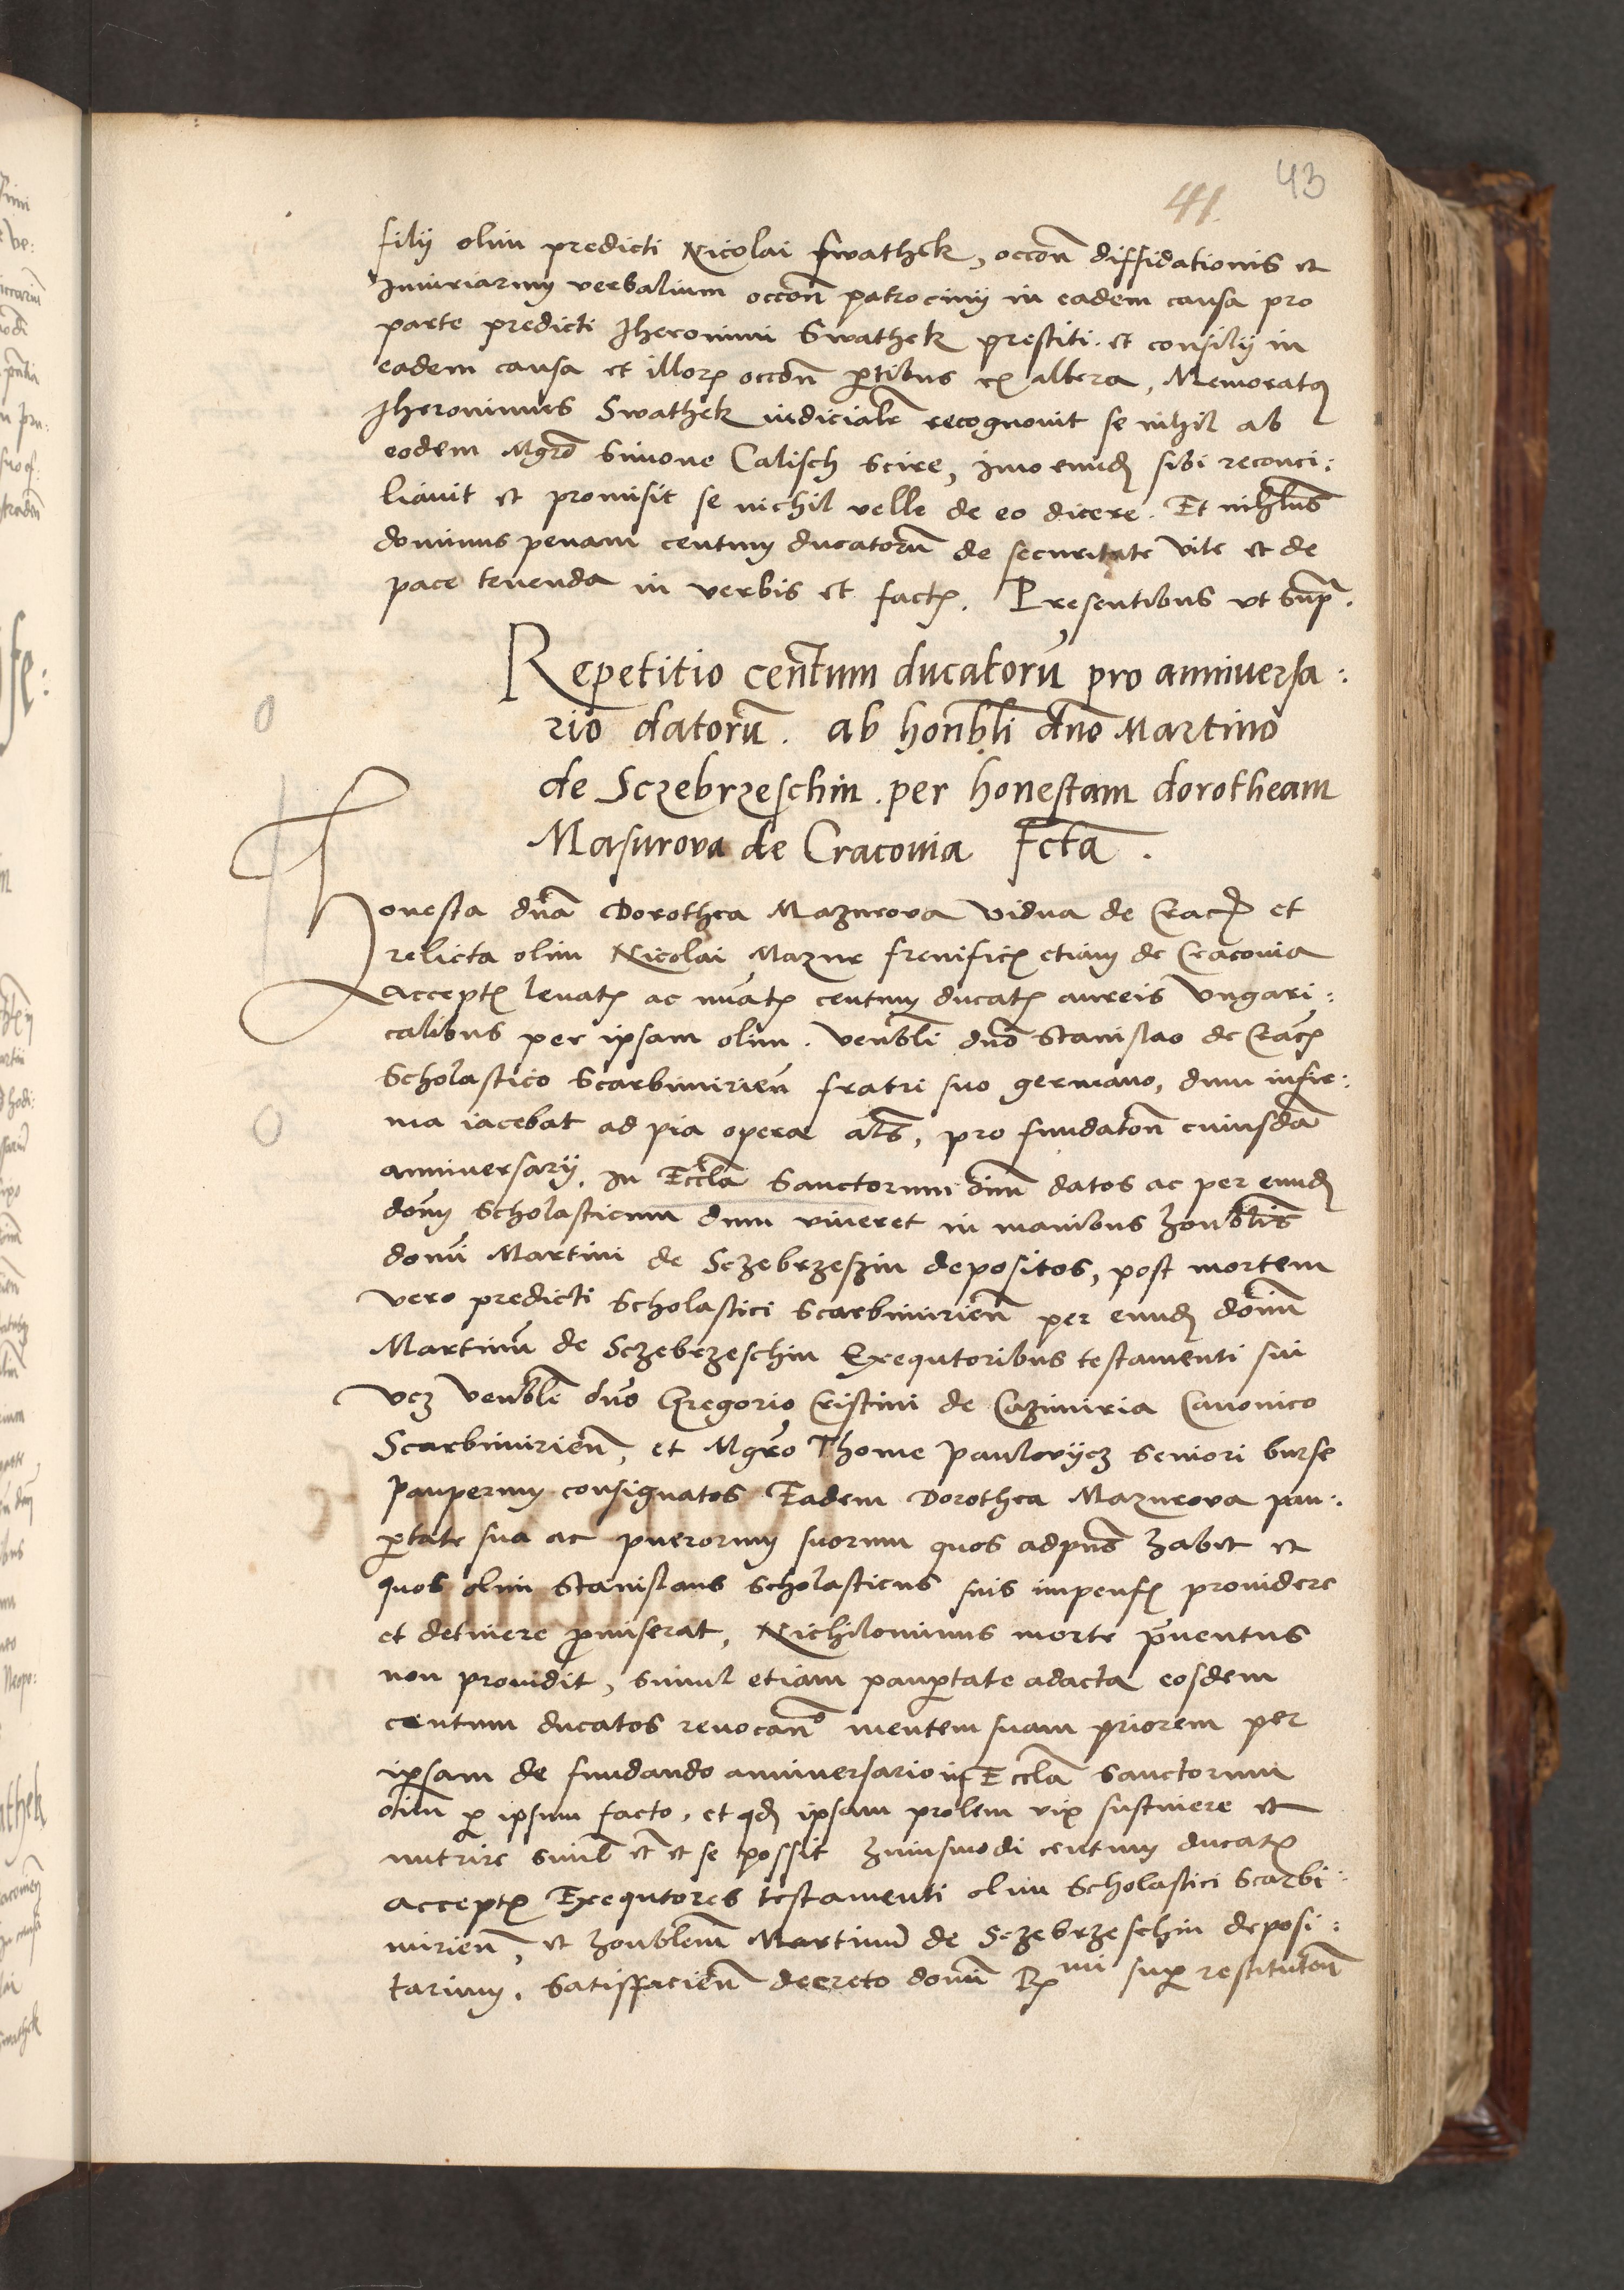 43
41.
filij olim predicti Nicolai Swathek, occon̄ diffidationis et
Iniuriarum verbalium occon̄ patrocinij in eadem causa pro
parte predicti Iheronimi Swathek prestiti. et consilij in
eadem causa et illorꝝ occon̄ ꝑtibus ex altera, Memoratꝯ
Iheronimus Swathek iudicialr̄ recognouit se nihil ab
eodem Mgrō Simone Calisch scire, imo eundꝫ sibi reconci:
liauit et promisit se nichil velle de eo dicere. Et nihlus̄
dominus penam centum ducatorū de securitate vite et de
pace tenenda in verbis et factꝭ. Presentibus vt supra.
Repetitio centum ducatorū pro anniuersa:
rio datorū. ab honbli dno Martino
de Sczebrzeschin. per honestam dorotheam
Masurova de Cracouia Fctā.
Honesta dnā Dorothea Mazurova vidua de Cracꝭ et
relicta olim Nicolai Mazur frenificꝭ etiam de Cracouia
Acceptꝭ leuatꝭ ac nūatꝭ centum ducatꝭ aureis Vngari:
calibus per ipsam olim. venbli dnō Stanislao de Cracꝭ
Scholastico Scarbimirien̄ fratri suo germano, dum infir:
ma iacebat ad pia opera als̄, pro fundaton̄ cuiusdā
anniversarij. in Eccłā Sanctorum oīm datos ac per eundꝫ
donum Scholasticum dum viueret in manibus honblis̄
domī Martini de Sczebrzeszin depositos, post mortem
vero predicti Scholastici Scarbimirien̄ per eundꝫ domū
Martinū de Sczebrzeschin Exequtoribus testamenti sui
vcꝫ venbli dnō Gregorio Cristini de Cazimiria Canonico
Scarbimirien̄, et Mgrō Thome Paulovijcz seniori burse
pauperum consignatos Eadem Dorothea Mazurova pau:
ꝑtate sua ac puerorum suorum quos adpns̄ habet et
quos olim Stanislaus Scholasticus suis impensꝭ prouidere
et detinere ꝓmiserat, Nichilominus morte p̄uentus
non prouidit, simul etiam pauꝑtate adacta eosdem
centum ducatos reuocan̄o mentem suam priorem per
ipsam de fundando anniversario in Eccłā Sanctorum
oīm ꝑ ipsum facto, et qdꝫ ipsam prolem vix sustinere et
nutrire simul et et se possit huiusmodi centum ducatꝭ
acceptꝭ Exequtores testamenti olim Scholastici Scarbi:
mirien̄, et honblem̄ Martinū de Sczebrzeschin deposi:
tarium. satisfacien̄ decreto domī Rꝭ nri suꝑ restituton̄